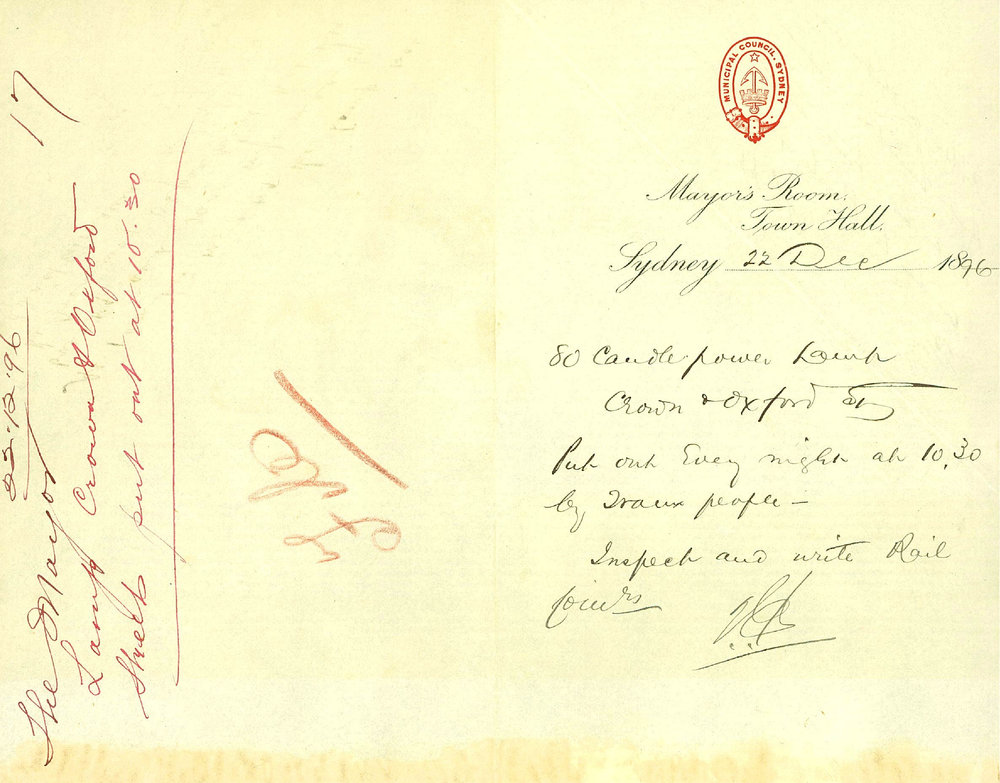 17
23.12.96
The Mayor
Lamp Crown & Oxford
Streets put out at 10.30
MUNICIPAL COUNCIL. SYDNEY
Mayor's Room.
Town Hall.
Sydney 22 Dec 1896
80 Candle power Lamp
Crown & Oxford St
Put out Every night at 10.30
by Tram people —
Inspect and write Rail
Comrs